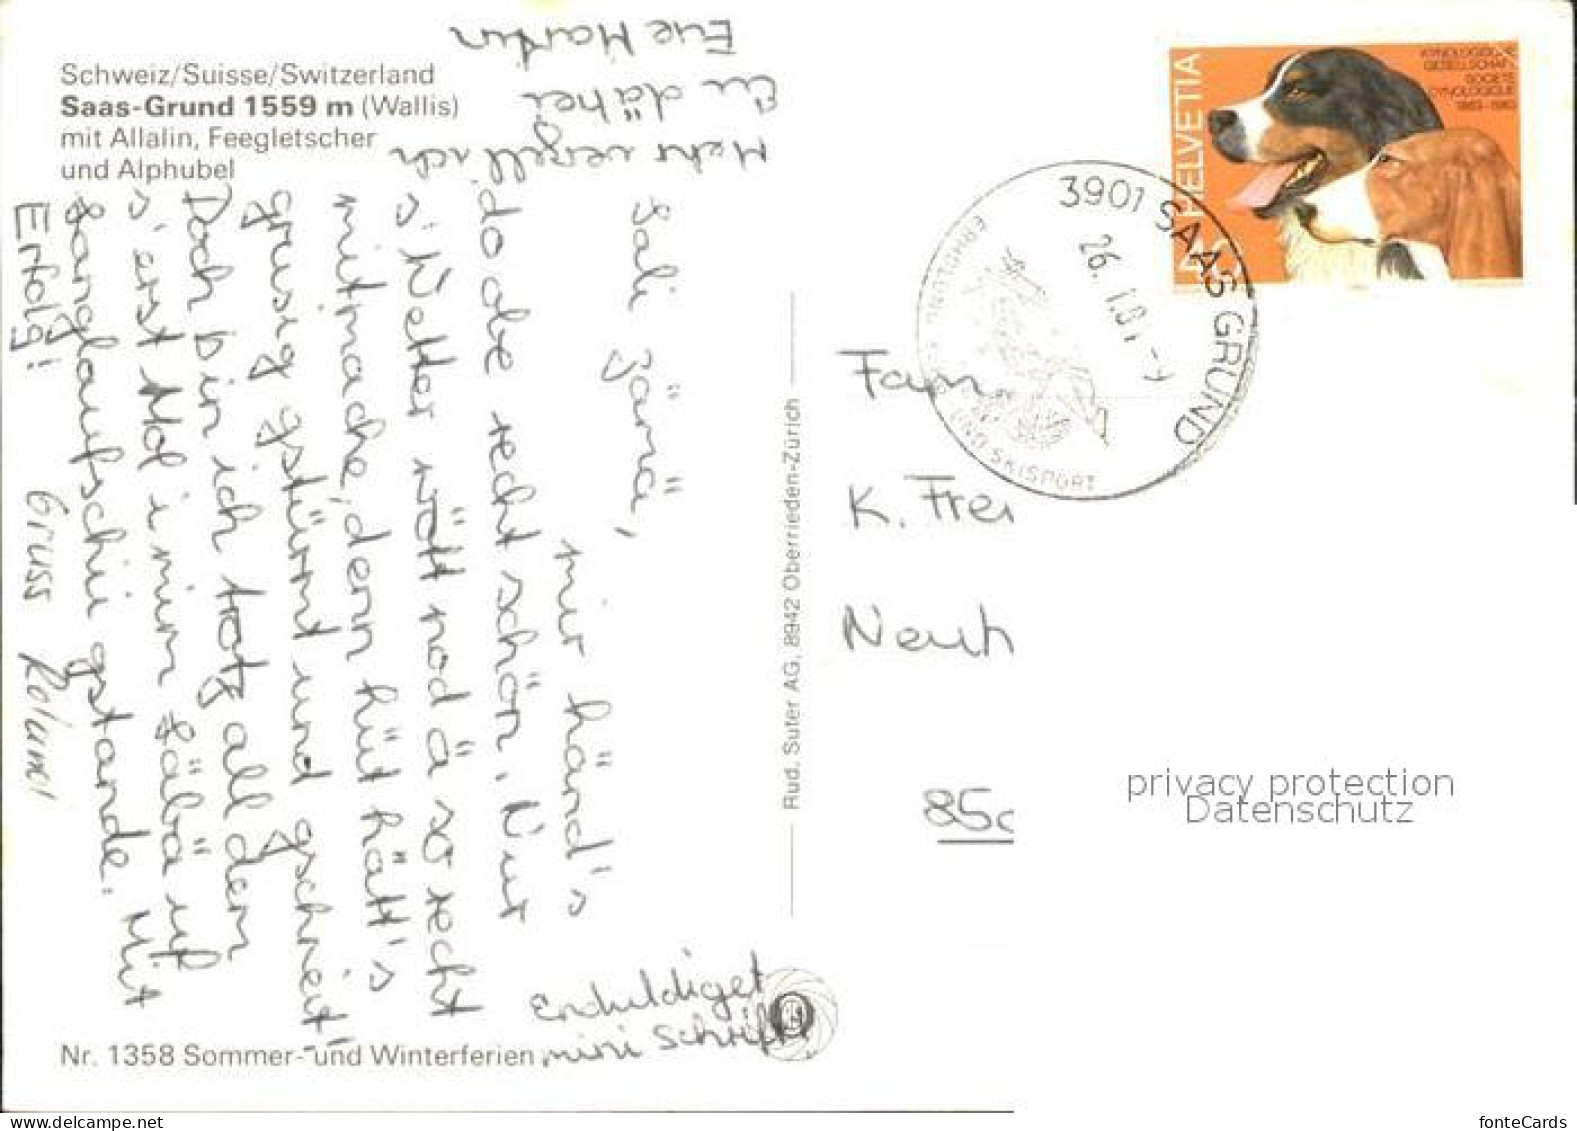 Schweiz/Suisse/Switzerland
Saas-Grund 1559 m (Wallis)
mit Allalin, Feegletscher
und Alphubel
Sali zämä,
mir händ's
do obe recht schön. Nur
s'Wetter wott nod ä so recht
mitmache, denn hüt hätt's
grusig gstürmt und gschneit!
Doch bin ich trotz all dem
s'erst Mol i mim Läbä uf
Langlaufschii gstande. Mit
Erfolg!
Gruss
Mehr vergellich
Eu dähei
Eue Martin
Entschuldiget
mini Schrift
Nr. 1358 Sommer- und Winterferien
Rud. Suter AG, 8942 Oberrieden-Zürich
HELVETIA
KYNOLOGISCHE
GESELLSCHAFT
SOCIETE
CYNOLOGIQUE
1883-1983
3901 SAAS GRUND
26.
ERHOLUNG
UND SKISPORT
Fam.
K. Frei
Neuh
85c
privacy protection
Datenschutz
fonteCards